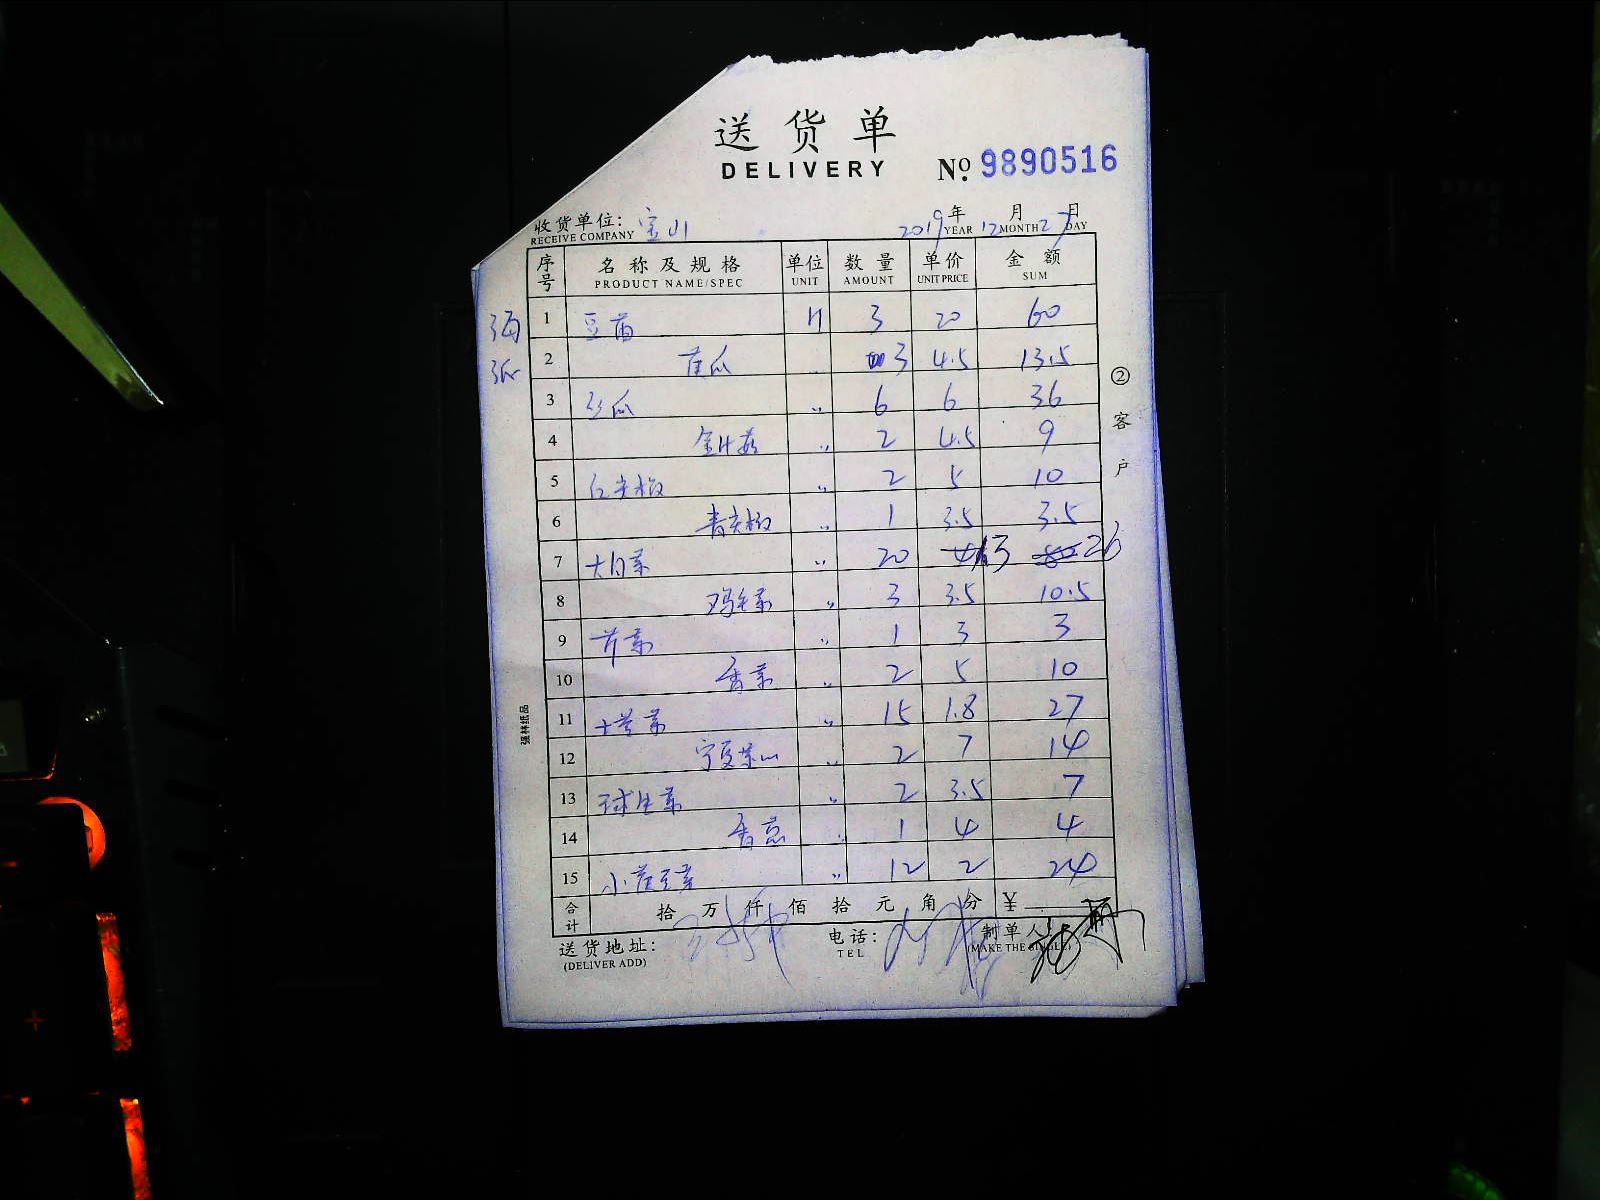 送货单
DELIVERY
No. 9890516
收货单位: 宝山 2019年 12月 27日
RECEIVE COMPANY YEAR MONTH DAY
序号 名称及规格 单位 数量 单价 金额
PRODUCT NAME/SPEC UNIT AMOUNT UNIT PRICE SUM
1 豆苗 斤 3 20 60
2 黄瓜 3 4.5 13.5
3 丝瓜 〃 6 6 36
4 金针菇 〃 2 4.5 9
5 红尖椒 〃 2 5 10
6 青尖椒 〃 1 3.5 3.5
7 大白菜 〃 20 1.3 26
8 鸡毛菜 〃 3 3.5 10.5
9 芹菜 〃 1 3 3
10 香菜 〃 2 5 10
11 〃 15 1.8 27
12 宁夏菜心 〃 2 7 14
13 球生菜 〃 2 3.5 7
14 香葱 〃 1 4 4
15 〃 12 2 24
合计 拾 万 仟 佰 拾 元 角 分 ¥
送货地址: 电话: 制单人
(DELIVER ADD) TEL (MAKE THE SINGLE)
②客户
强林纸品